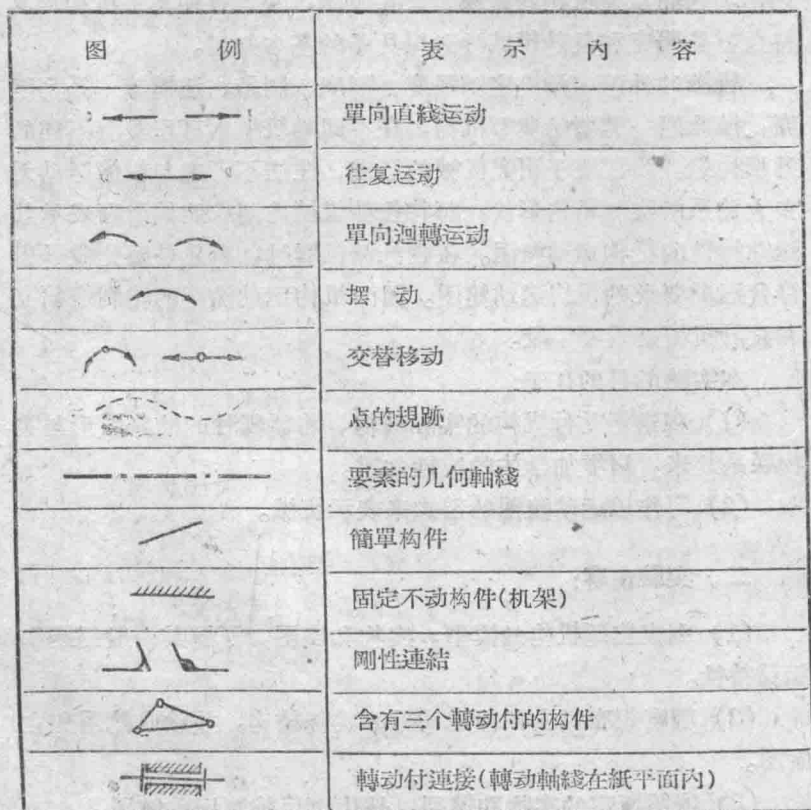 图 例 表 示 内 容
單向直綫运动
往复运动
單向迴轉运动
摆 动
交替移动
点的規跡
要素的几何軸綫
簡單构件
固定不动构件(机架)
剛性連結
含有三个轉动付的构件
轉动付連接(轉动軸綫在紙平面內)